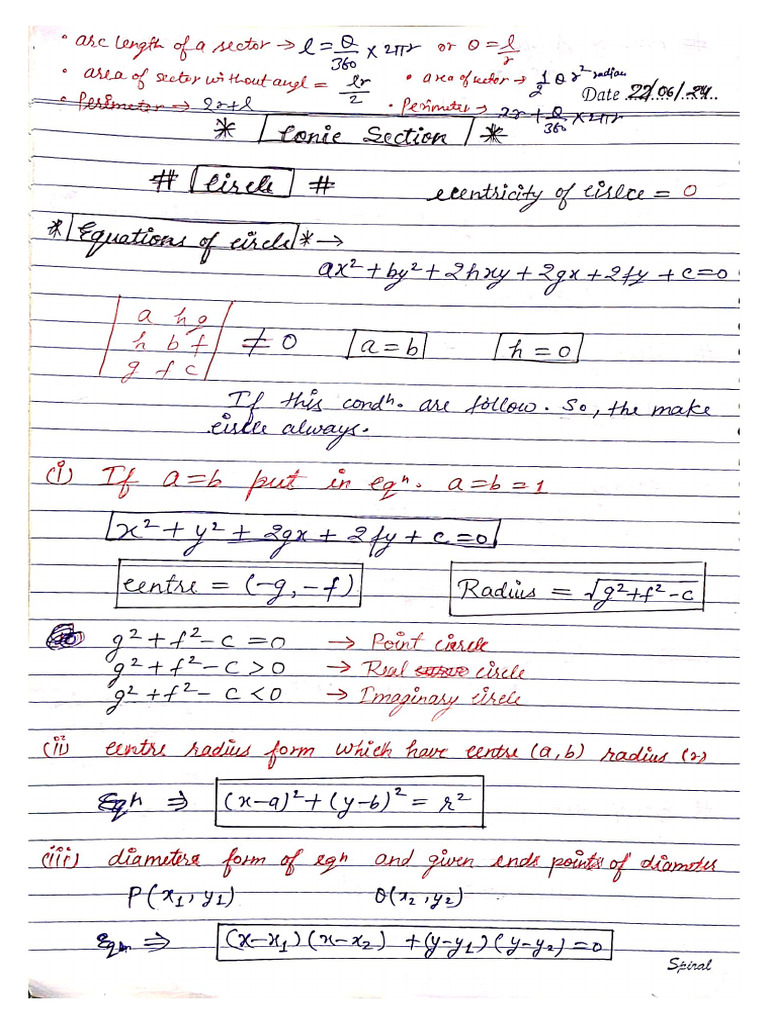 • arc length of a sector → l = θ/360 × 2πr or θ = l/r
• area of sector without angl = lr/2 • area of sector → 1/2 θ r² radian
Date 22/06/24
• Perimeter → 2r+l • Perimeter → 2r + θ/360 × 2πr
* Conic Section *
# Circle # eccentricity of circlce = 0
* Equations of circle * →
ax² + by² + 2hxy + 2gx + 2fy + c = 0
| a h g |
| h b f | ≠ 0 a = b h = 0
| g f c |
If this condⁿ. are follow. So, the make
circle always.
(i) If a = b put in eqⁿ. a = b = 1
x² + y² + 2gx + 2fy + c = 0
centre = (-g, -f) Radius = √g²+f²-c
g² + f² - c = 0 → Point circle
g² + f² - c > 0 → Real circle
g² + f² - c < 0 → Imaginary circle
(ii) centre radius form which have centre (a, b) radius (r)
Eqn ⇒ (x-a)² + (y-b)² = r²
(iii) diametere form of eqn and given ends points of diameter
P(x₁, y₁) O(x₂, y₂)
Eqn ⇒ (x-x₁)(x-x₂) + (y-y₁)(y-y₂) = 0
Spiral